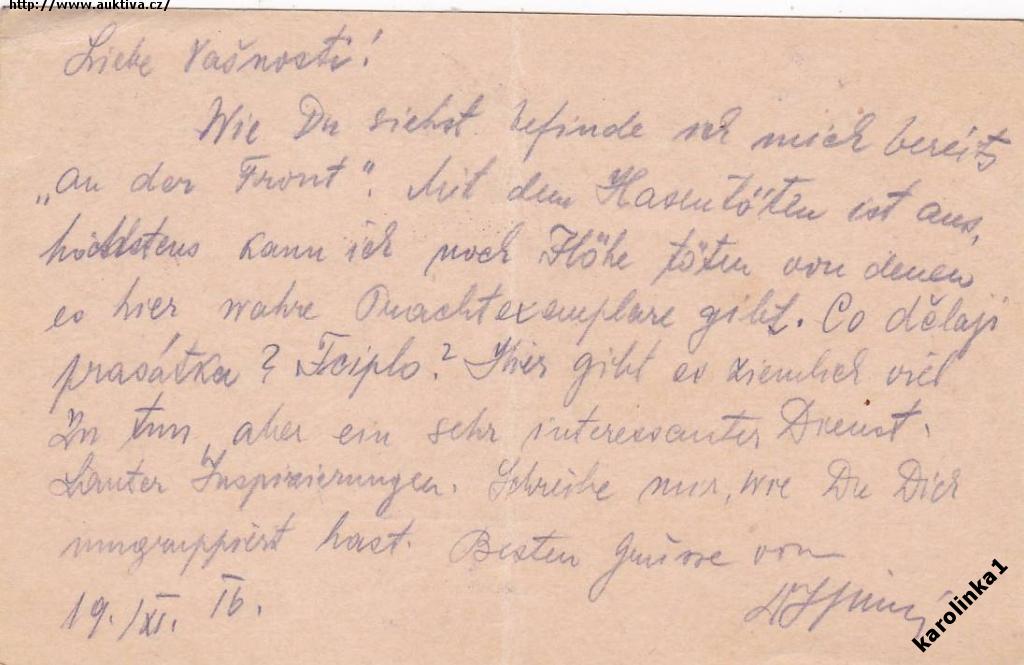 http://www.auktiva.cz/
Liebe Vašnosti!
Wie Du siehst befinde ich mich bereits
„an der Front“. Mit dem Hasentöten ist aus,
höchstens kann ich noch Flöhe töten von denen
es hier wahre Prachtexemplare gibt. Co dělají
prasátka? ? Hier gibt es ziemlich viel
zu tun, aber ein sehr interessanter Dienst.
Lauter Inspizierungen. Schreibe mir, wie Du Dich
umgruppiert hast. Besten Grüsse von
19./XI. 16.
karolinka1